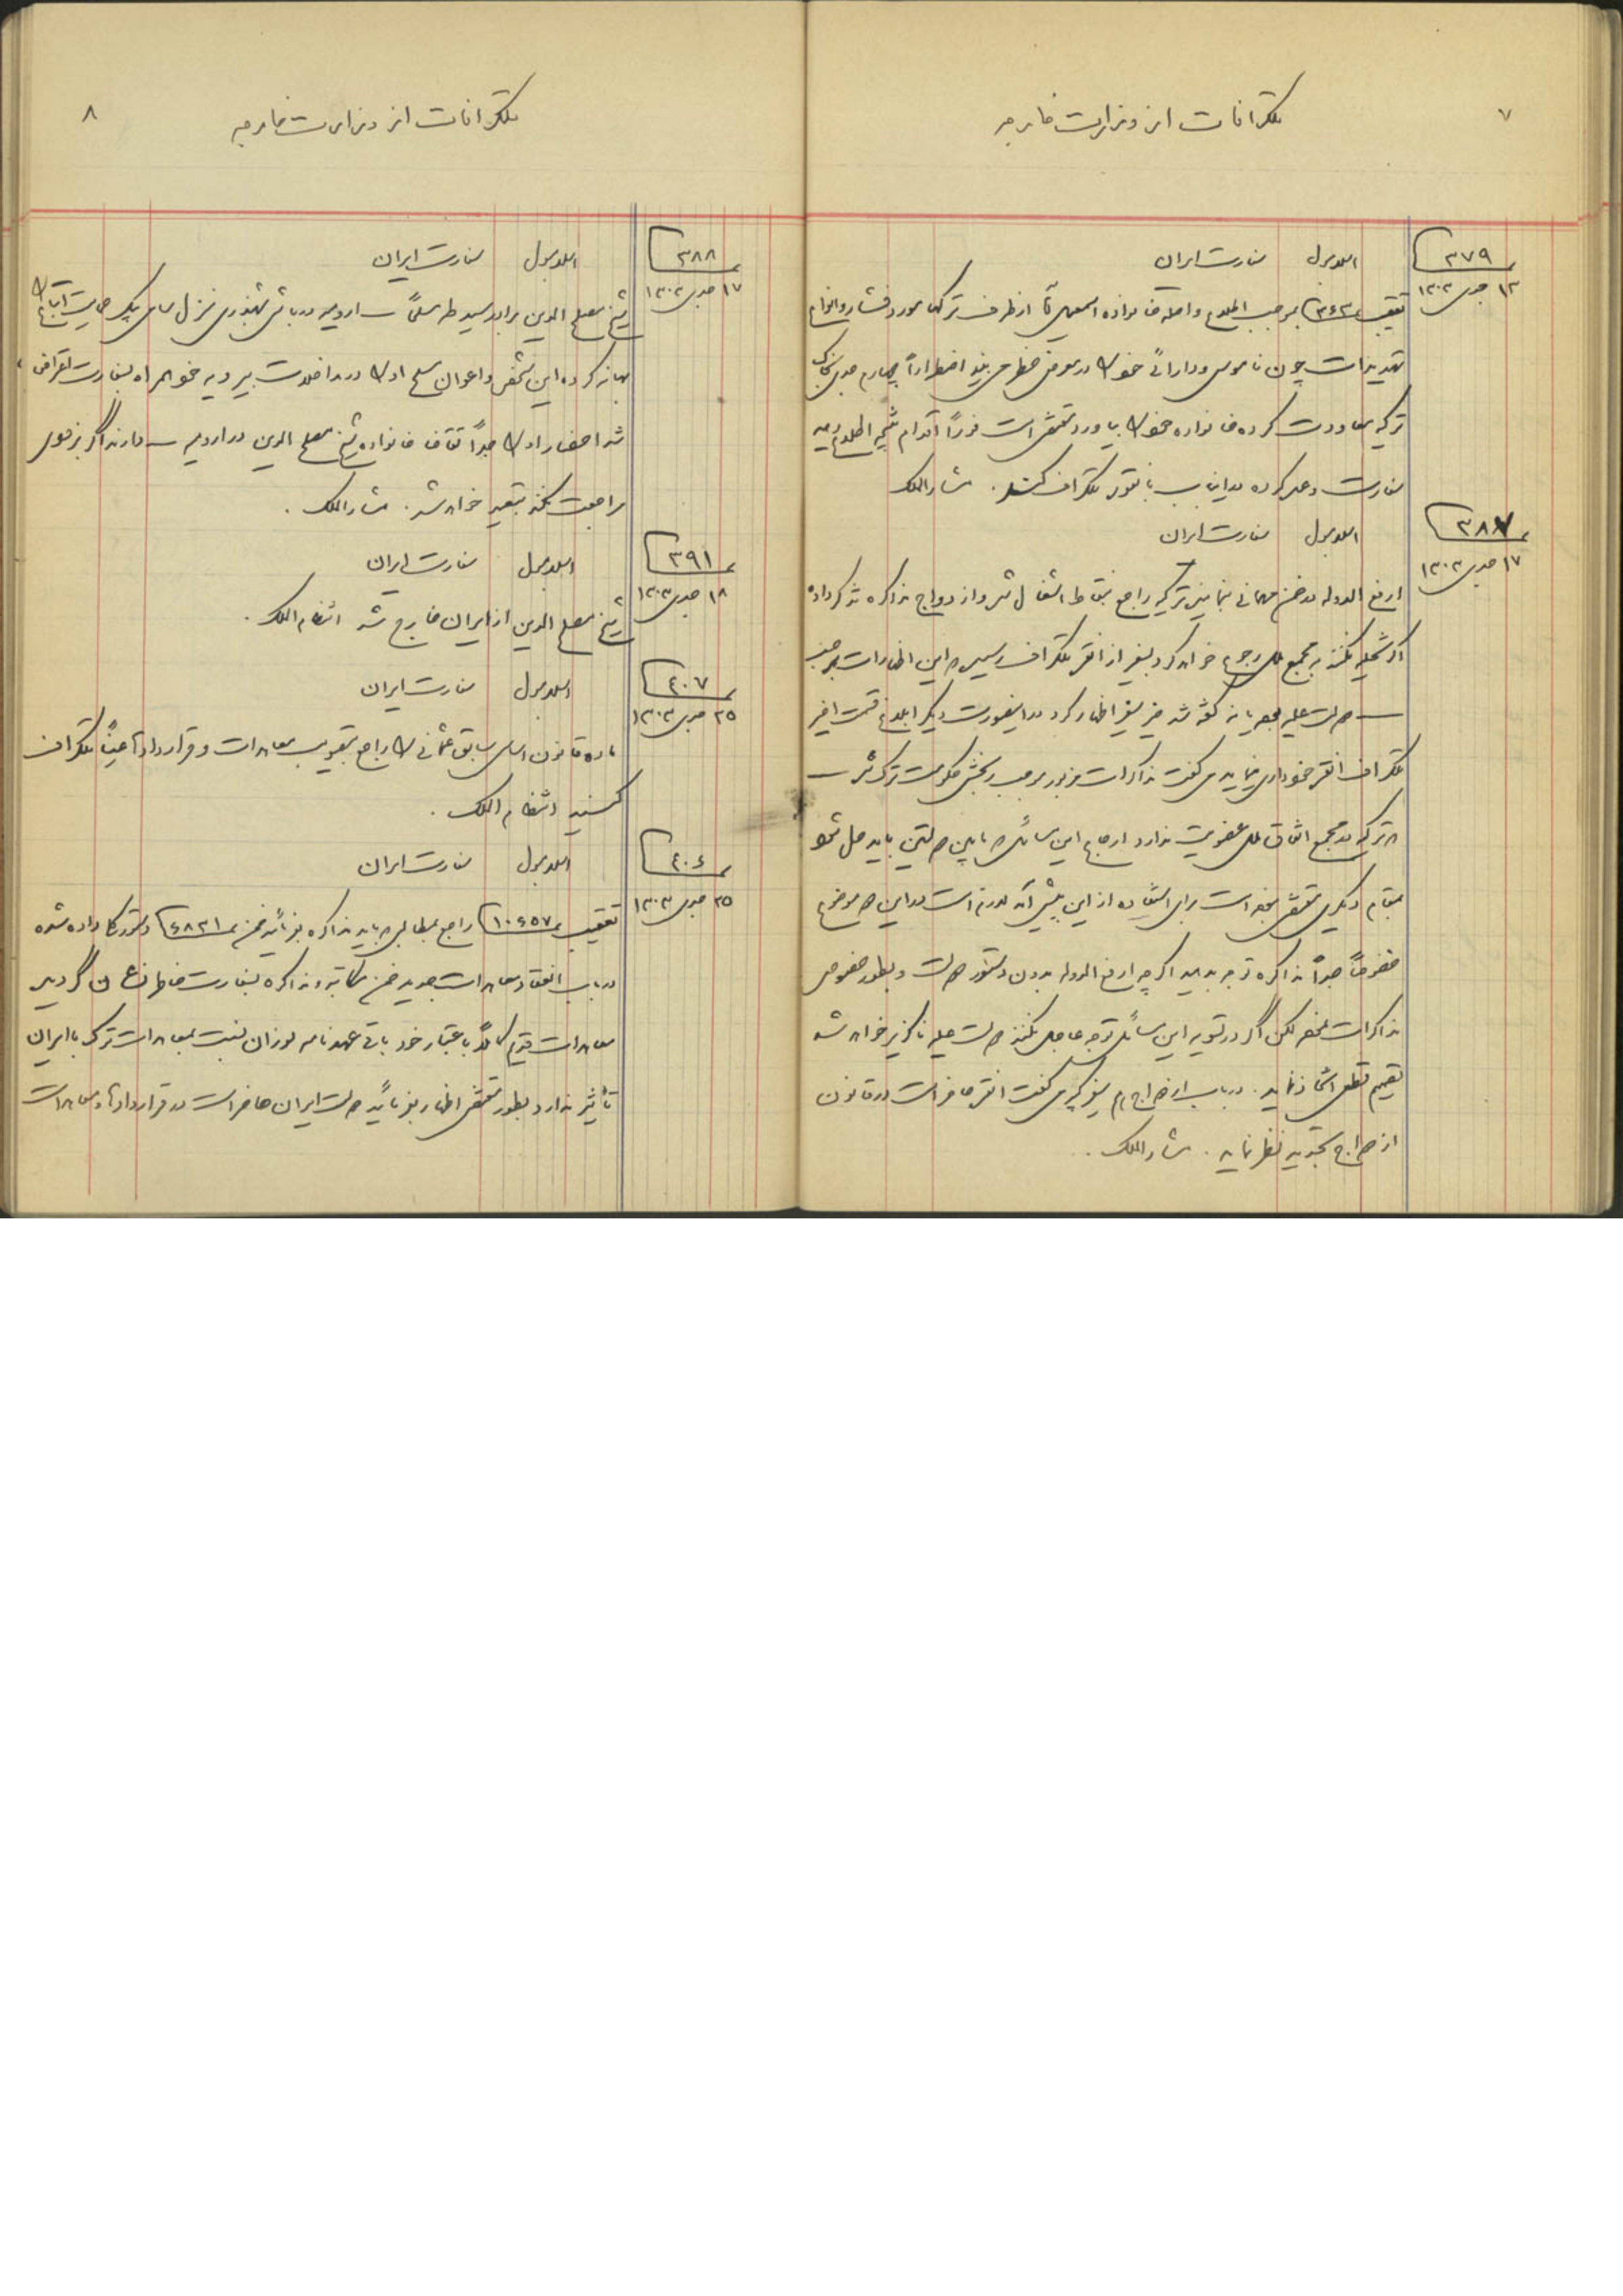 ۷
تلگرافات از وزارت خارجه
نمره ۳۷۹
۱۲ جدی ۱۳۰۲
اسلامبول سفارت ایران
تعقیب نمره ۳۶۲ بموجب اطلاع واصله خانواده اسمعیل آقا از طرف ترکها مورد فشار و انواع
تهدیدات چون ناموس و دارائی خود را در معرض خطر می بیند اضطراراً چهارم جدی بخاک
ترکیه معاودت کرده خانواده خود را بیاورد مقتضی است فوراً اقدام نتیجه اطلاع دهید
سفارت وعده کرده در این باب بآنقره تلگراف کند. مشارالملک
نمره ۳۸۷
۱۷ جدی ۱۳۰۲
اسلامبول سفارت ایران
ارفع الدوله در ضمن مهمانی بنماینده ترکیه راجع بنقاط اشغال شده و ازدواج مذاکره تذکر داده
اگر تخلیه نکنند به مجمع ملل رجوع خواهد کرد سفیر از انقره تلگراف رسیده این اظهارات بر حسب
دولت علیه محرمانه گفته شد خیر سفیر اظهار کرد در اینصورت دیگر ابلاغ قسمت اخیر
تلگراف انقره خودداری مینماید می گفت مذاکرات مزبور موجب رنجش حکومت ترک شده
ترکیه در مجمع اتفاق ملل عضویت ندارد ارجاع این مسائل که مابین دولتین باید حل شود
بمقام دیگری مقتضی نبوده است برای استفاده از این پیش آمد لازم است در این موضوع
حضوراً جداً مذاکره توجه بدهید اگر چه ارفع الدوله بدون دستور دولت و بطور خصوصی
مذاکرات نموده لکن اگر در تسویه این مسائل توجه عاجل نکنند دولت علیه ناگزیر خواهد شد
تصمیم قطعی اتخاذ نماید. در باب ازدواج هم سفیر کبیر می گفت انقره حاضر است در قانون
ازدواج تجدید نظر نماید. مشارالملک.
۸
تلگرافات از وزارت خارجه
نمره ۳۸۸
۱۷ جدی ۱۳۰۲
اسلامبول سفارت ایران
شیخ مصلح الدین برادر سید طه مسلماً ارومیه در باش شهبندری منزل سامی بیک حمایت اتباع را
بهانه کرده این شخص و اعوان مسلح او را در مداخلات بیرویه خود همراه سفارت اعتراض
شد احضار او را جداً تقاضا خانواده شیخ مصلح الدین در ارومیه دارند اگر بزودی
مراجعت نکند تبعید خواهد شد. مشارالملک.
نمره ۳۹۱
۱۸ جدی ۱۳۰۳
اسلامبول سفارت ایران
شیخ مصلح الدین از ایران خارج شد انتظام الملک.
نمره ۴۰۷
۲۵ جدی ۱۳۰۳
اسلامبول سفارت ایران
ماده قانون اساسی سابق عثمانی را راجع بتصویب معاهدات و قراردادها عیناً تلگراف
کنید انتظام الملک.
نمره ۴۰۶
۲۵ جدی ۱۳۰۳
اسلامبول سفارت ایران
تعقیب نمره ۱۰۶۵۷ راجع بمطالبی که باید مذاکره بفرمائید ضمن نمره ۶۸۳۱ دستور کار داده شده
در باب انعقاد معاهدات جدید ضمن مکاتبه و مذاکره بسفارت خاطرنشان گردید
معاهدات قدیم کاملاً باعتبار خود باقی عهدنامه لوزان نسبت بمعاهدات ترک با ایران
تأثیر ندارد بطور مقتضی اظهار بفرمائید دولت ایران حاضر است در قراردادها و معاهدات